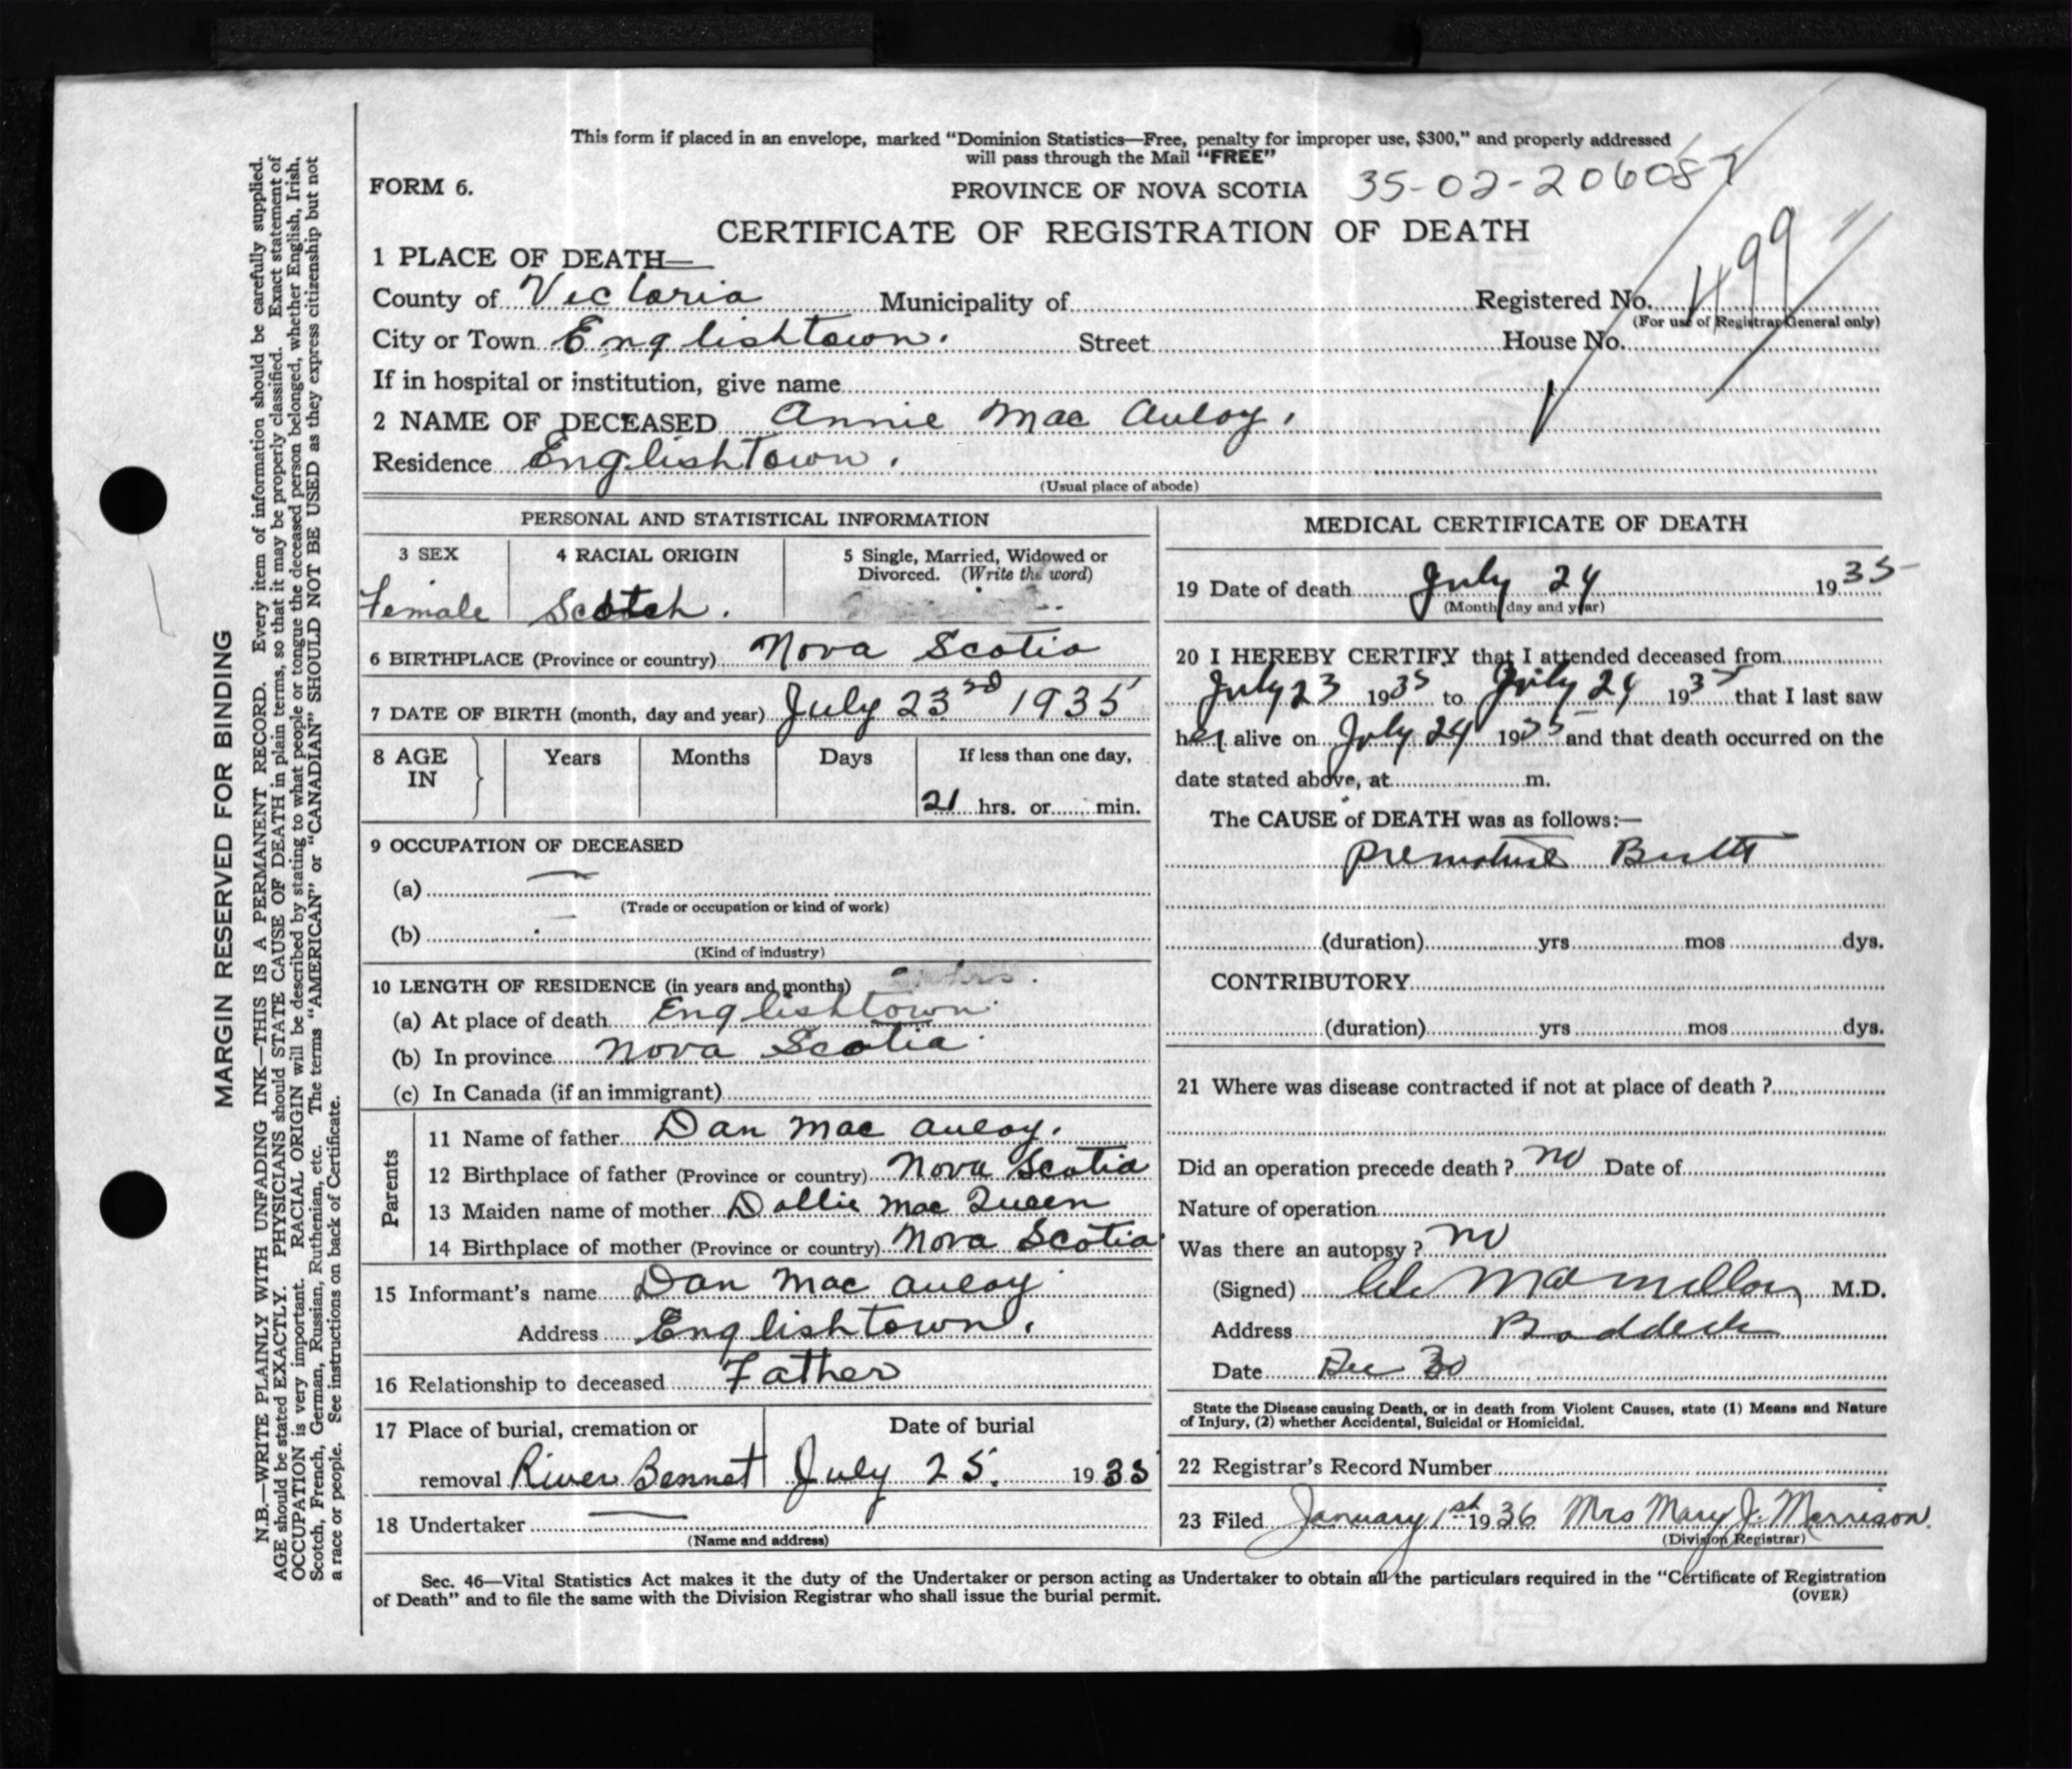 This form if placed in an envelope, marked “Dominion Statistics—Free, penalty for improper use, $300,” and properly addressed
will pass through the Mail “FREE”
FORM 6.
PROVINCE OF NOVA SCOTIA 35-02-206087
CERTIFICATE OF REGISTRATION OF DEATH
1 PLACE OF DEATH—
County of Victoria Municipality of Registered No. 499
(For use of Registrar General only)
City or Town Englishtown. Street House No.
If in hospital or institution, give name
2 NAME OF DECEASED Annie Mac Auloy.
Residence Englishtown.
(Usual place of abode)
PERSONAL AND STATISTICAL INFORMATION
3 SEX
Female
4 RACIAL ORIGIN
Scotch.
5 Single, Married, Widowed or
Divorced. (Write the word)
6 BIRTHPLACE (Province or country) Nova Scotia
7 DATE OF BIRTH (month, day and year) July 23rd 1935
8 AGE IN
Years Months Days If less than one day,
21 hrs. or min.
9 OCCUPATION OF DECEASED
(a) —
(Trade or occupation or kind of work)
(b)
(Kind of industry)
10 LENGTH OF RESIDENCE (in years and months)
(a) At place of death Englishtown.
(b) In province Nova Scotia.
(c) In Canada (if an immigrant)
Parents
11 Name of father Dan Mac Auloy.
12 Birthplace of father (Province or country) Nova Scotia
13 Maiden name of mother Dollie Mac Queen
14 Birthplace of mother (Province or country) Nova Scotia
15 Informant's name Dan Mac Auloy
Address Englishtown.
16 Relationship to deceased Father
17 Place of burial, cremation or
removal River Bennet
Date of burial
July 25. 1935
18 Undertaker —
(Name and address)
MEDICAL CERTIFICATE OF DEATH
19 Date of death July 24 1935
(Month, day and year)
20 I HEREBY CERTIFY that I attended deceased from
July 23 1935 to July 24 1935 that I last saw
her alive on July 24 1935 and that death occurred on the
date stated above, at m.
The CAUSE of DEATH was as follows:—
Premature Birth
(duration) yrs mos dys.
CONTRIBUTORY
(duration) yrs mos dys.
21 Where was disease contracted if not at place of death ?
Did an operation precede death ? no Date of
Nature of operation
Was there an autopsy ? no
(Signed) MacMillan M.D.
Address Baddeck
Date Dec 30
State the Disease causing Death, or in death from Violent Causes, state (1) Means and Nature
of Injury, (2) whether Accidental, Suicidal or Homicidal.
22 Registrar's Record Number
23 Filed January 1st 1936 Mrs Mary J. Morrison.
(Division Registrar)
Sec. 46—Vital Statistics Act makes it the duty of the Undertaker or person acting as Undertaker to obtain all the particulars required in the “Certificate of Registration
of Death” and to file the same with the Division Registrar who shall issue the burial permit.
(OVER)
MARGIN RESERVED FOR BINDING
N.B.—WRITE PLAINLY WITH UNFADING INK—THIS IS A PERMANENT RECORD. Every item of information should be carefully supplied.
AGE should be stated EXACTLY. PHYSICIANS should STATE CAUSE OF DEATH in plain terms, so that it may be properly classified. Exact statement of
OCCUPATION is very important. RACIAL ORIGIN will be described by stating to what people or tongue the deceased person belonged, whether English, Irish,
Scotch, French, German, Russian, Ruthenian, etc. The terms “AMERICAN” or “CANADIAN” SHOULD NOT BE USED as they express citizenship but not
a race or people. See instructions on back of Certificate.